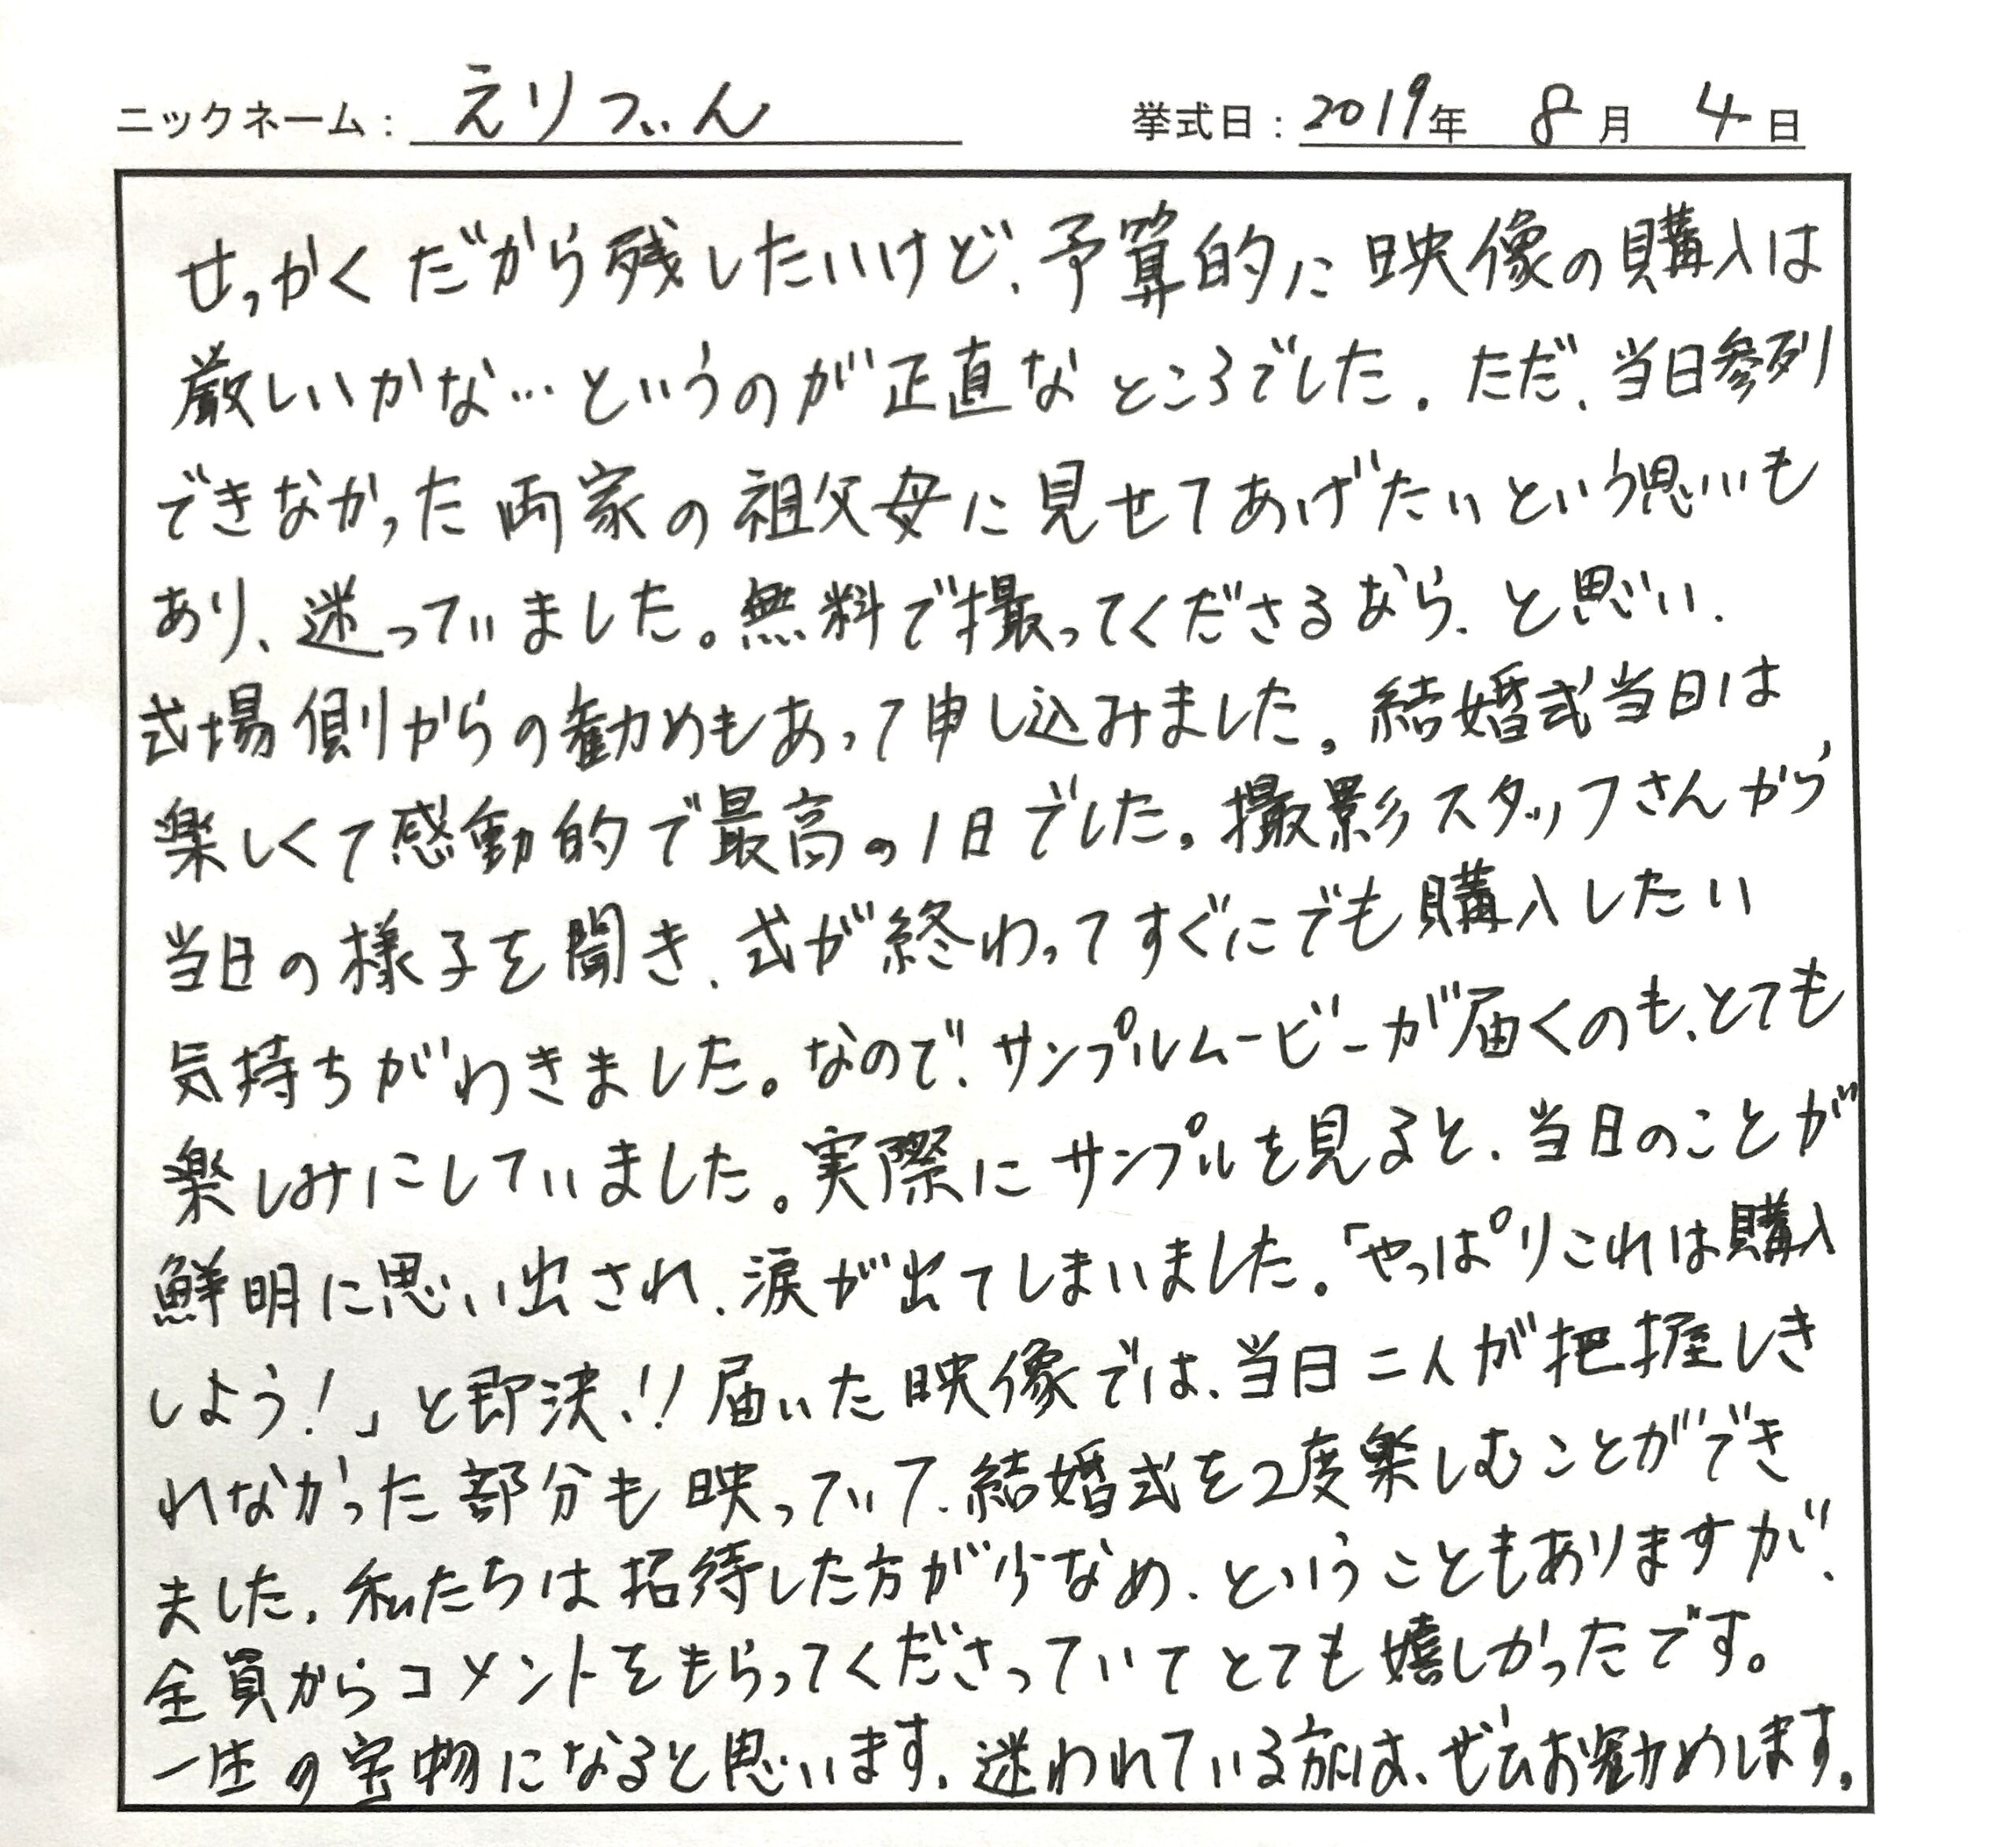 ニックネーム: えりつぃん 挙式日: 2019年 8月 4日
せっかくだから残したいけど、予算的に映像の購入は
厳しいかな…というのが正直なところでした。ただ、当日参列
できなかった両家の祖父母に見せてあげたいという思いも
あり、迷っていました。無料で撮ってくださるなら、と思い、
式場側からの勧めもあって申し込みました。結婚式当日は
楽しくて感動的で最高の1日でした。撮影スタッフさんから
当日の様子を聞き、式が終わってすぐにでも購入したい
気持ちがわきました。なので、サンプルムービーが届くのも、とても
楽しみにしていました。実際にサンプルを見ると、当日のことが
鮮明に思い出され、涙が出てしまいました。「やっぱりこれは購入
しよう!」と即決!!届いた映像では、当日二人が把握しき
れなかった部分も映っていて、結婚式を2度楽しむことができ
ました。私たちは招待した方が少なめ、ということもありますが、
全員からコメントをもらってくださっていてとても嬉しかったです。
一生の宝物になると思います。迷われている方には、ぜひお勧めします。